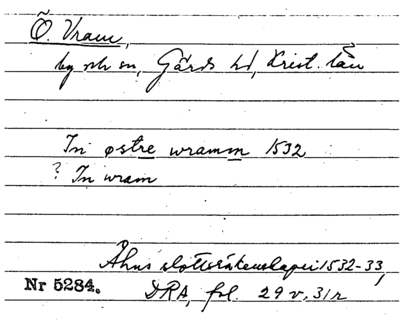 Ö. Vram,
by och sn, Gärds hd, Krist. län
In østre wramm 1532
? In wram
Åhus slottsräkenskaper 1532-33,
Nr 5284. DRA, fol. 29 v, 31 r